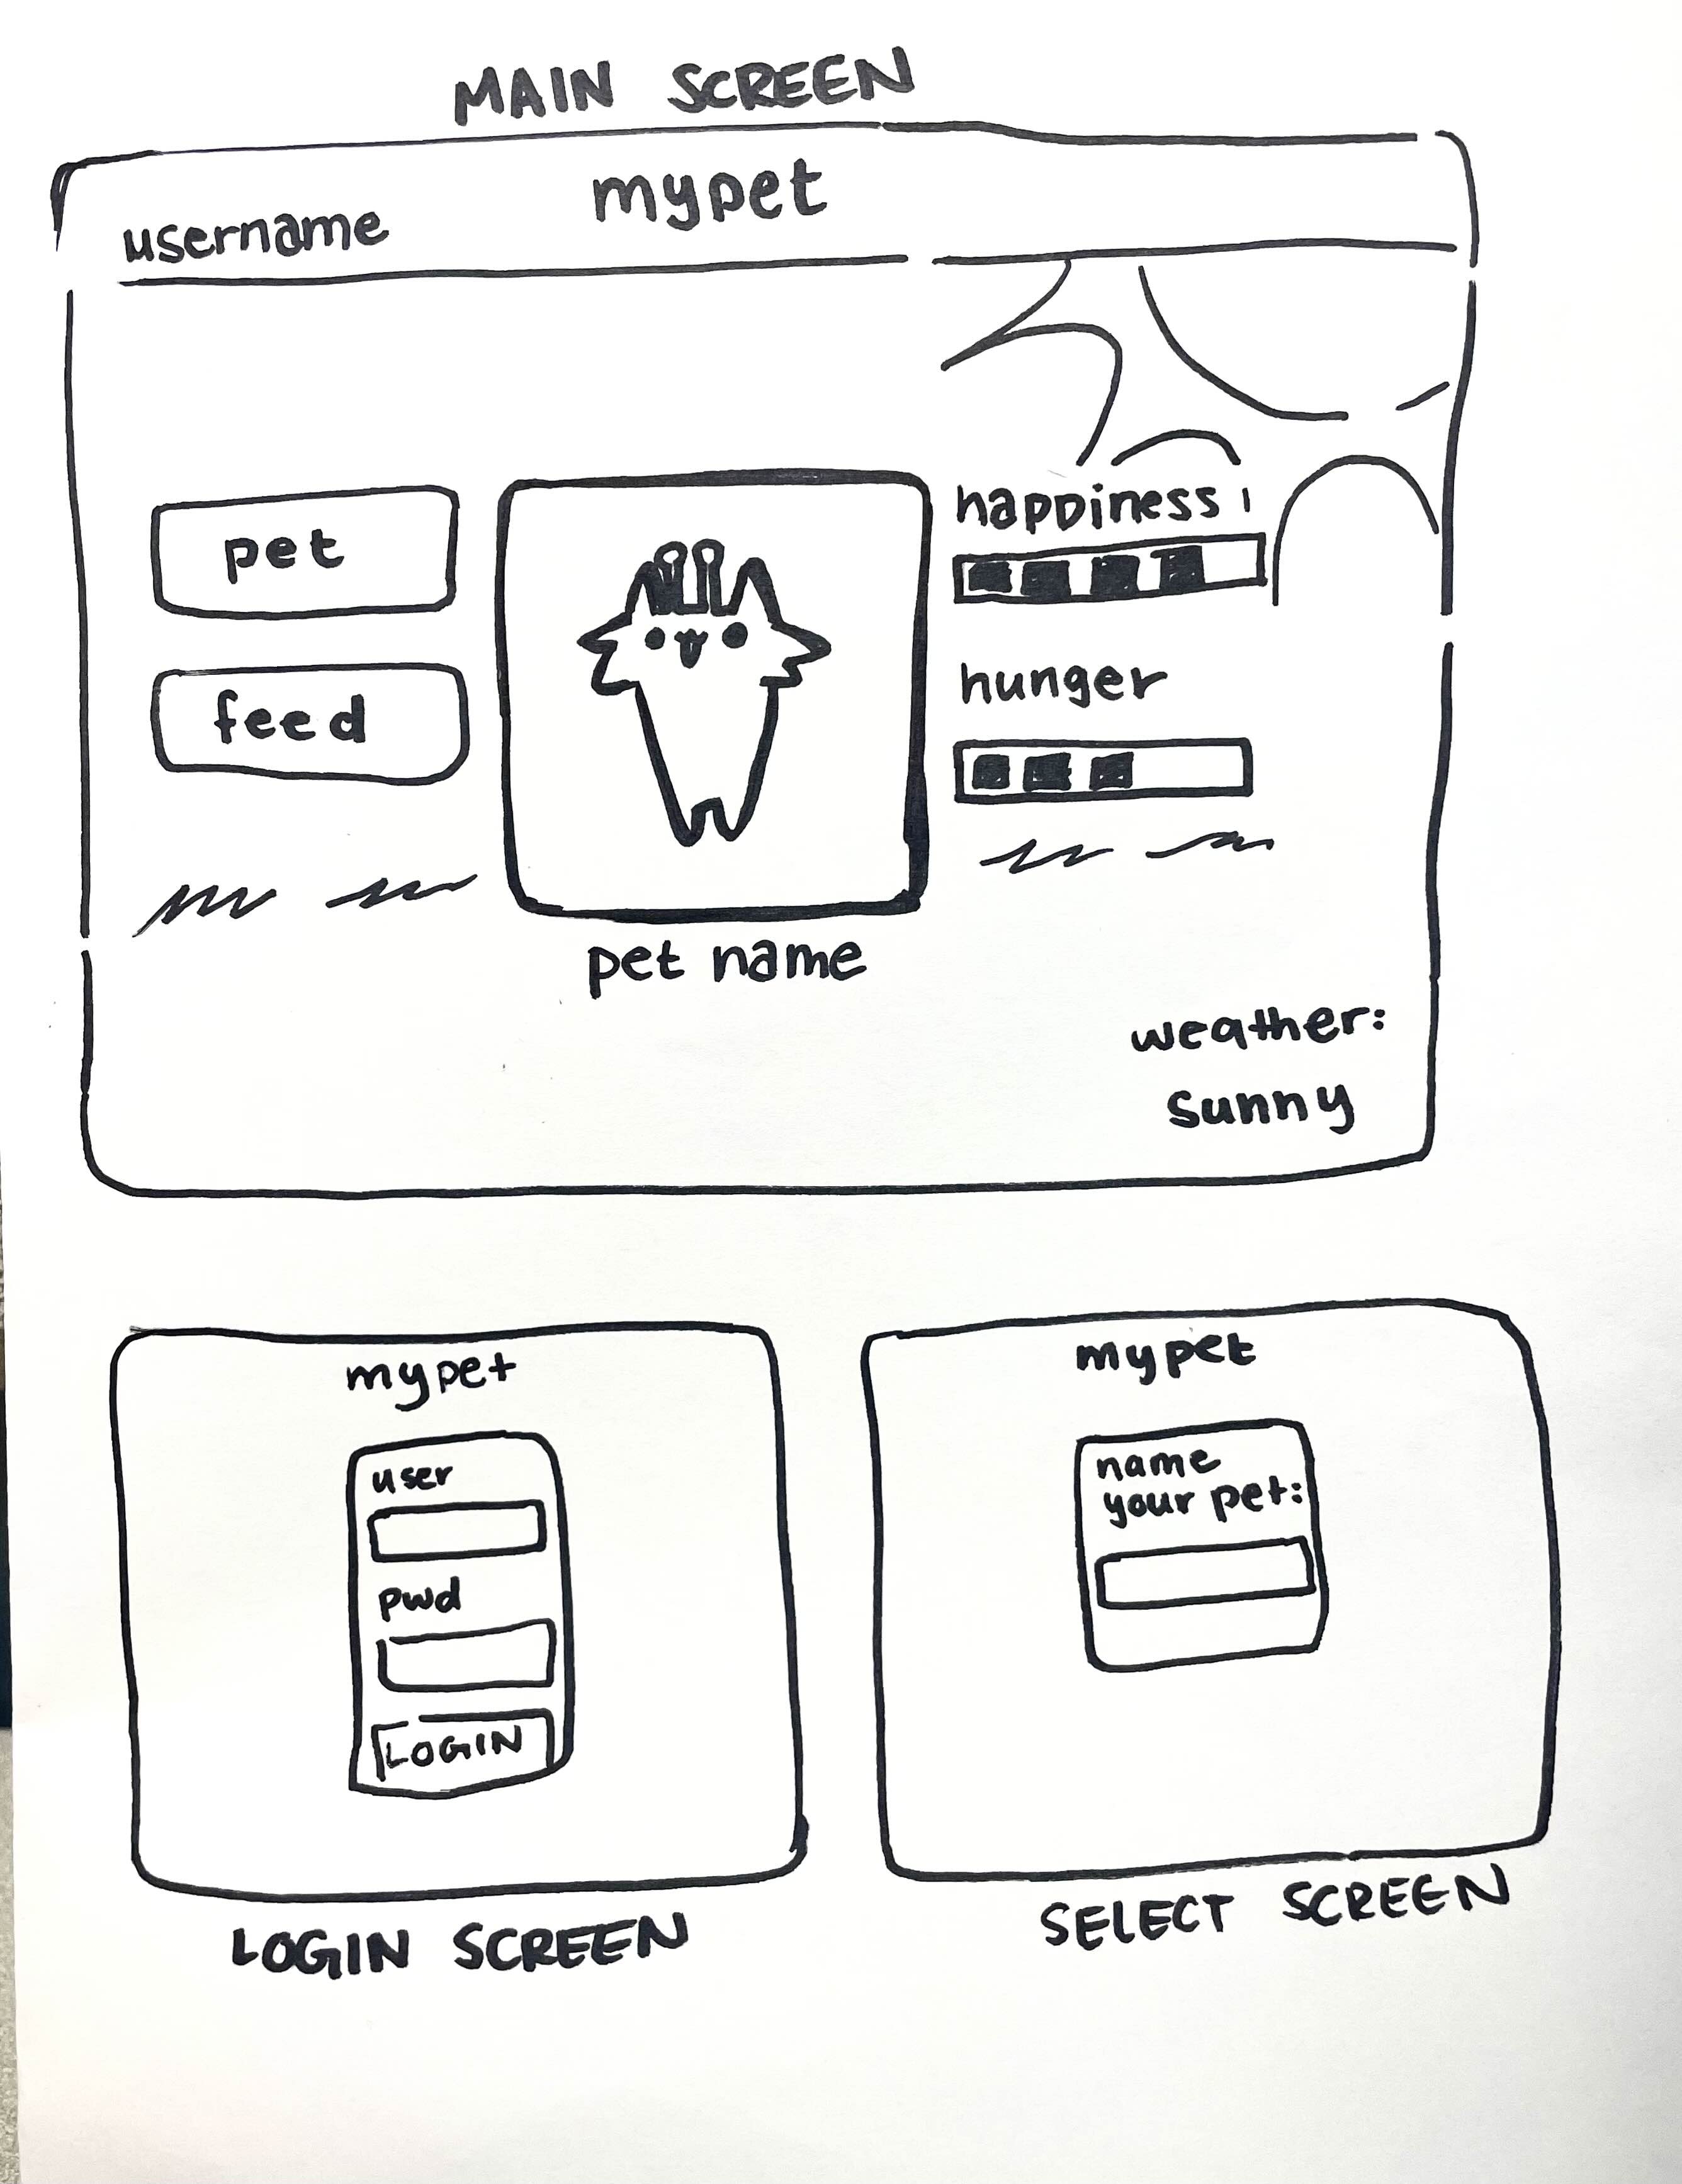 MAIN SCREEN
mypet
username
pet
feed
happiness
hunger
pet name
weather:
sunny
mypet
user
pwd
LOGIN
LOGIN SCREEN
mypet
name
your pet:
SELECT SCREEN